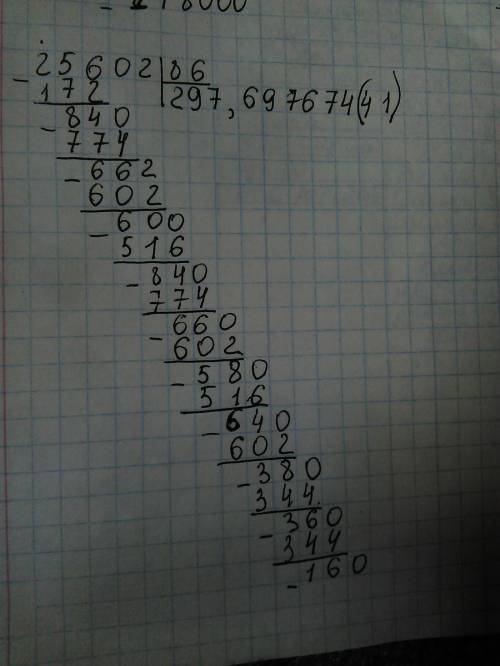 - 178000
- 25602 | 86
172 | 297,697674(41)
- 840
774
- 662
602
- 600
516
- 840
774
- 660
602
- 580
516
- 640
602
- 380
344
- 360
344
- 160